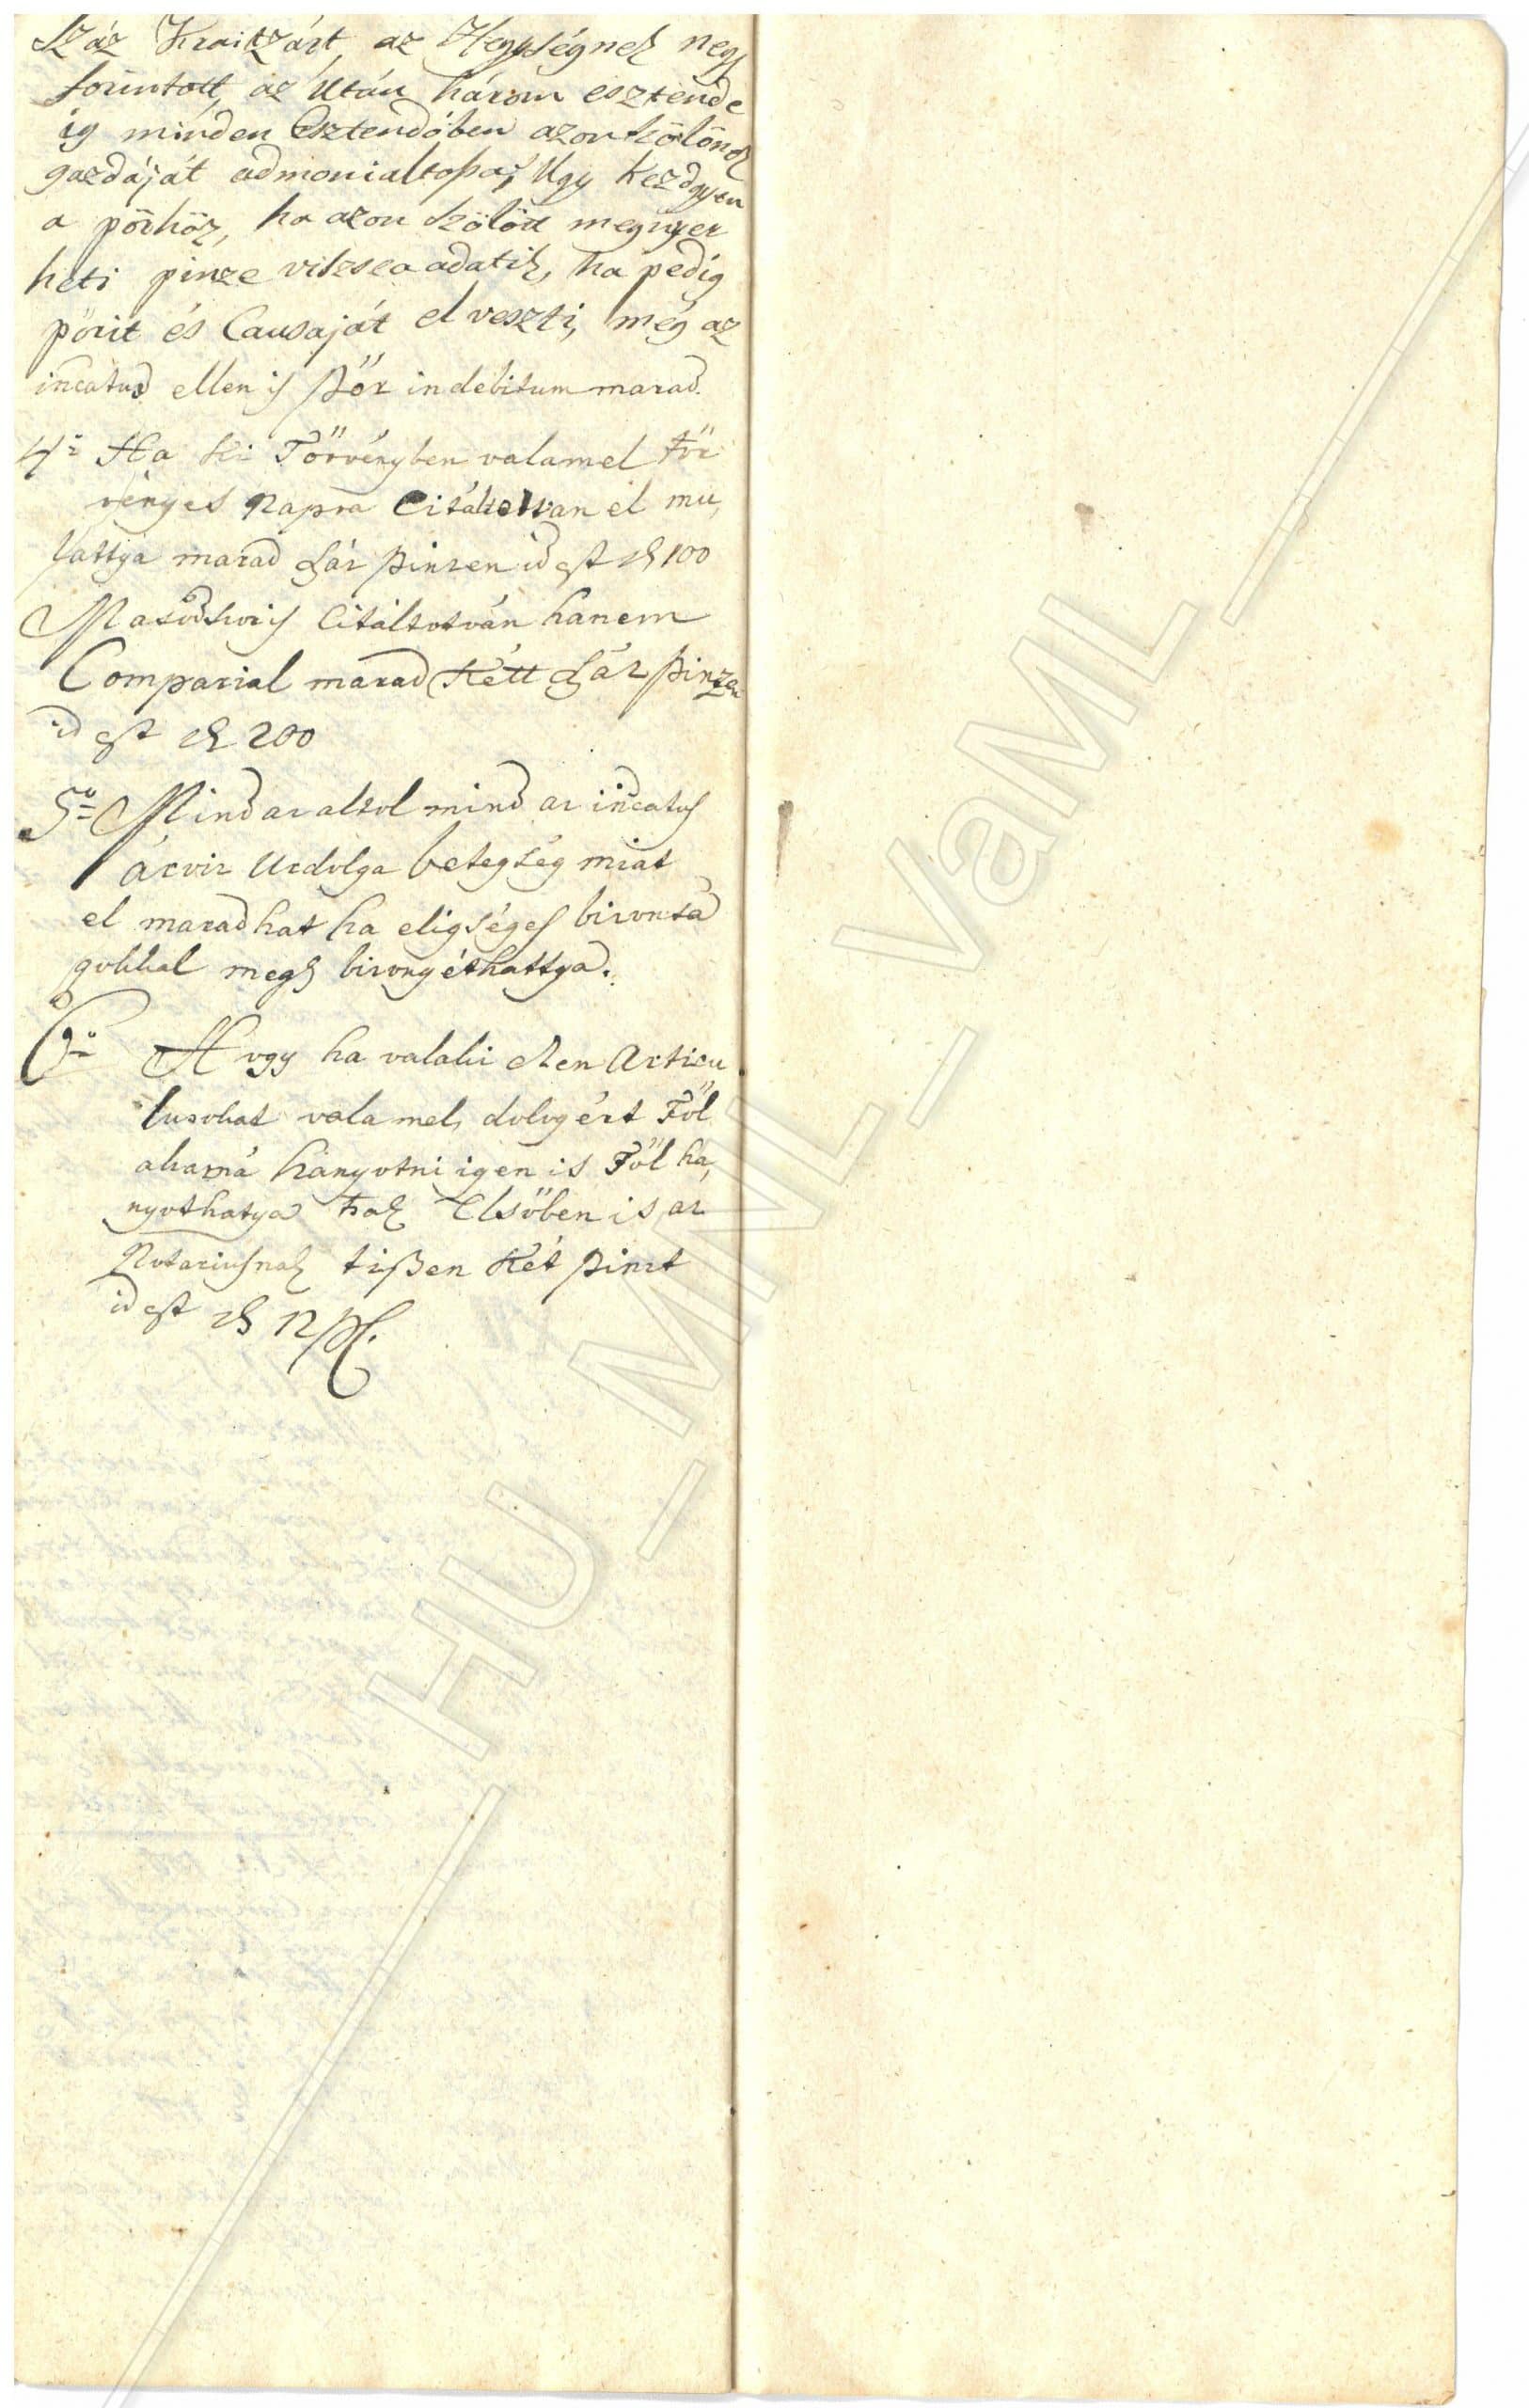 Száz Kraitzárt, az Hegységnek negy
forintott, az után három esztende
ig minden Esztendőben azon szölönek
gazdáját admonialtassa, Ugy kezdgyen
a pörhöz, ha azon szölött megnyer
heti pinze viszsea adatik, ha pedig
pörit és Causaját el veszti, még az
incatus ellen is Pőr indebitum marad.
4º Ha ki Törvényben valamel tör
vényes Napra Citáltotván el mu,
lattya marad Száz pinzen id est d 100
Masodszoris Citáltotván hanem
Comparial marad Kétt Száz pinzen
id est d 200
5º Mind az altol mind az incatus
Urdolga betegség miat
el maradhat ha eligséges bizonsá
gokkal megh bizonyéthattya.
6º Hogy ha valaki ezen Articu
lusokat valamel, dologért Föl
akarná hányotni igen is Föl há,
nyothatya Elsöben is az
Notariusnak tizen Két pinzt
id est d 12
HU_MNL_VaML